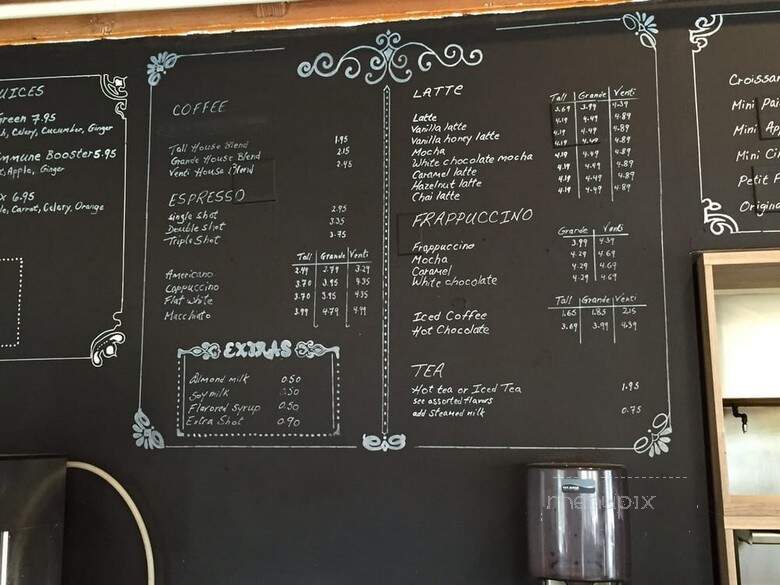 UICES
Green 7.95
h, Celery, Cucumber, Ginger
mmune Booster 5.95
t, Apple, Ginger
x 6.95
le, Carrot, Celery, Orange
COFFEE
Tall House Blend 1.95
Grande House Blend 2.15
Venti House Blend 2.45
ESPRESSO
Single Shot 2.95
Double Shot 3.35
Triple Shot 3.75
Tall Grande Venti
Americano 2.49 2.79 3.29
Cappuccino 3.70 3.95 4.35
Flat white 3.70 3.95 4.35
Macchiato 3.99 4.79 4.99
EXTRAS
Almond milk 0.50
Soy milk 0.50
Flavored Syrup 0.50
Extra Shot 0.90
LATTE
Tall Grande Venti
Latte 3.69 3.99 4.39
Vanilla latte 4.19 4.49 4.89
Vanilla honey latte 4.19 4.49 4.89
Mocha 4.19 4.49 4.89
White chocolate mocha 4.19 4.49 4.89
Caramel latte 4.19 4.49 4.89
Hazelnut latte 4.19 4.49 4.89
Chai latte 4.19 4.49 4.89
FRAPPUCCINO
Grande Venti
Frappuccino 3.99 4.39
Mocha 4.29 4.69
Caramel 4.29 4.69
White chocolate 4.29 4.69
Tall Grande Venti
Iced Coffee 1.65 1.85 2.15
Hot Chocolate 3.69 3.99 4.39
TEA
Hot tea or Iced Tea 1.95
see assorted flavors
add steamed milk 0.75
Croissan
Mini Pai
Mini Ap
Mini Ci
Petit F
Origina
menupix